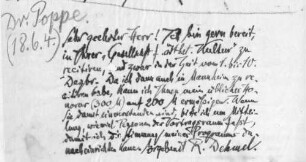 Dr. Poppe.
(18.6.4.)
Sehr geehrter Herr! Ich bin gern bereit,
in Ihrer Gesellschaft f. ästhet. Kultur zu
recitiren, und zwar in der Zeit vom 1. bis 10.
Dezbr. Da ich dann auch in Mannheim zu re-
citiren habe, kann ich Ihnen mein übliches Ho-
norar (300 M) auf 200 M ermäßigen. Wenn
Sie damit einverstanden sind, bitte ich um Mittei-
lung, wieviel Vortragsraum
damit ich die meines Programms
kann. Ergebenst R. Dehmel.